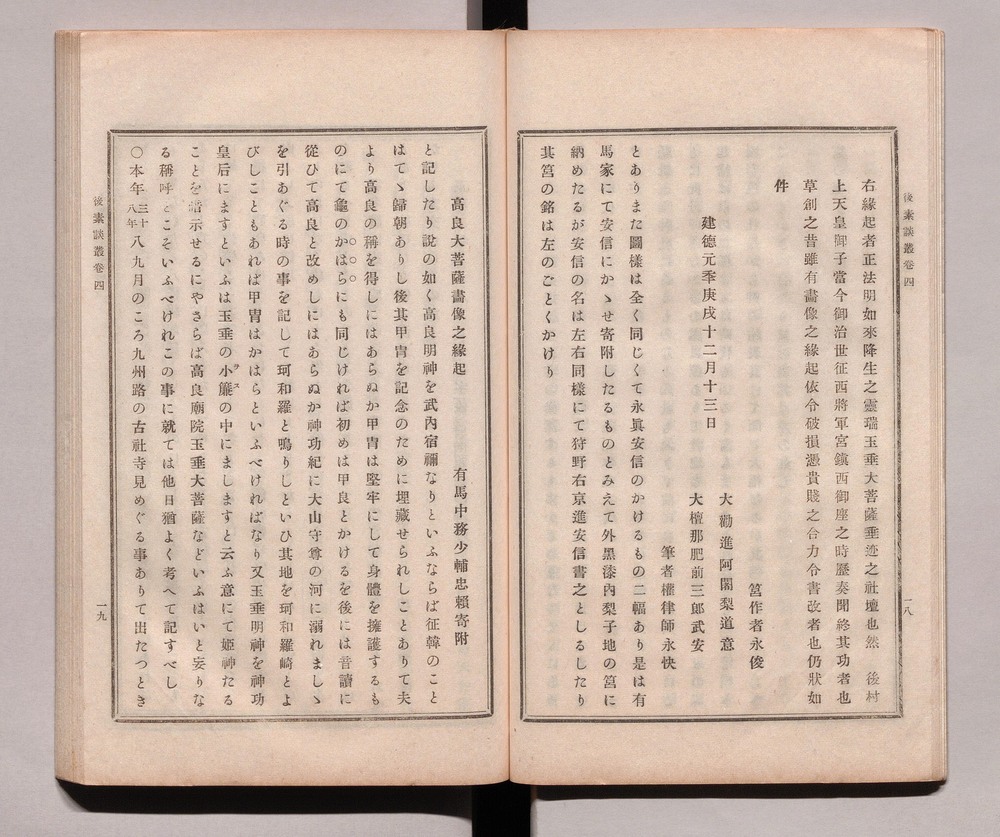 後素談叢卷四
一八
右緣起者正法明如來降生之靈瑞玉垂大菩薩垂迹之社壇也然　後村
上天皇御子當今御治世征西將軍宮鎭西御座之時歷奏聞終其功者也
草創之昔雖有畵像之緣起依令破損憑貴賤之合力令書改者也仍狀如
件
筥作者永俊
建德元季庚戌十二月十三日
大勸進阿闍梨道意
大檀那肥前三郞武安
筆者權律師永快
とありまた圖樣は全く同じくて永眞安信のかけるもの二幅あり是は有
馬家にて安信にかゝせ寄附したるものとみえて外黑漆內梨子地の筥に
納めたるが安信の名は左右同樣にて狩野右京進安信書之としるしたり
其筥の銘は左のごとくかけり
高良大菩薩畵像之緣起　　有馬中務少輔忠賴寄附
と記したり說の如く高良明神を武內宿禰なりといふならば征韓のこと
はてゝ歸朝ありし後其甲冑を記念のために埋藏せられしことありて夫
より高良の稱を得しにはあらぬか甲冑は堅牢にして身體を擁護するも
のにて龜のかはらにも同じければ初めは甲良とかけるを後には音讀に
從ひて高良と改めしにはあらぬか神功紀に大山守尊の河に溺れましゝ
を引あぐる時の事を記して珂和羅と鳴りしといひ其地を珂和羅崎とよ
びしこともあれば甲冑はかはらといふべければなり又玉垂明神を神功
皇后にますといふは玉垂の小簾ヲスの中にましますと云ふ意にて姬神たる
ことを諳示せるにやさらば高良廟院玉垂大菩薩などいふはいと妄りな
る稱呼とこそいふべけれこの事に就ては他日猶よく考へて記すべし
〇本年三十八年八九月のころ九州路の古社寺見めぐる事ありて出たつとき
後素談叢卷四
一九